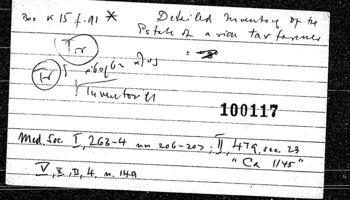 Box K 15 f. 91 * Detailed Inventory of the
Estate of a rich tax farmer
Tr
Tr
Inventory
100117
Med. Soc. I, 263-4 nn 206-207; II, 479, sec. 23
"Ca 1145"
V, x, B, 4, n. 149